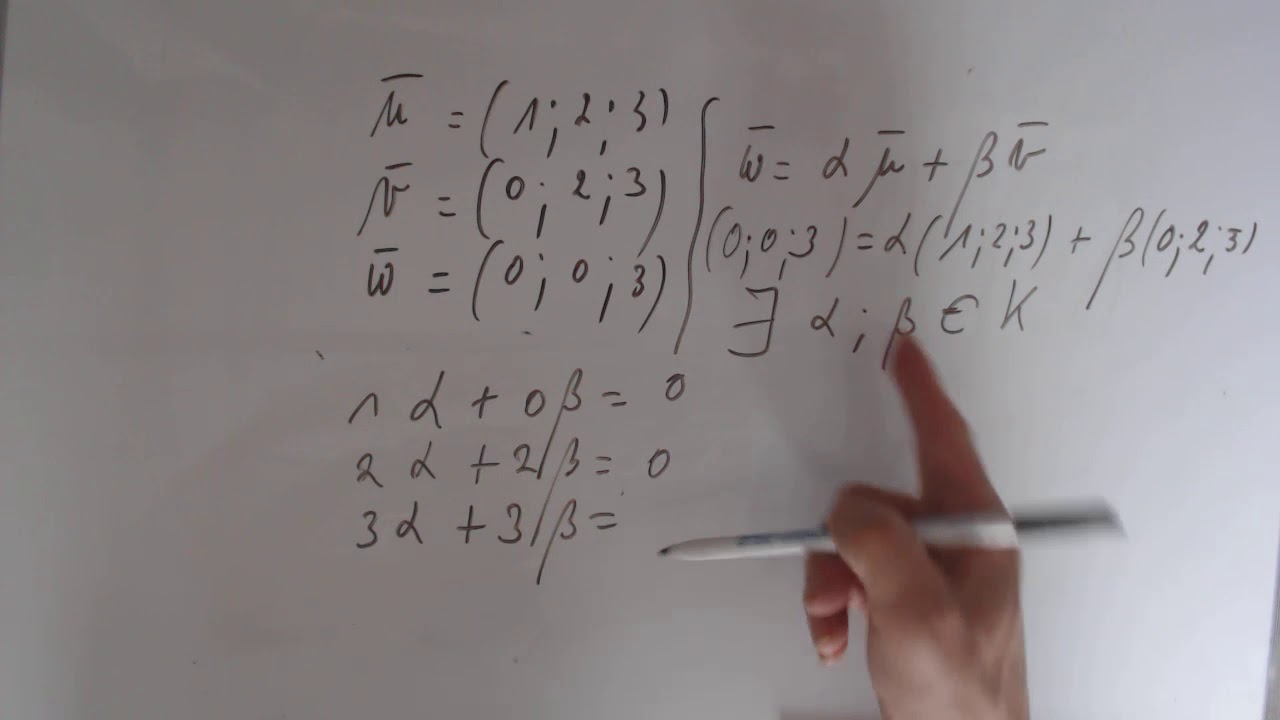 ū = (1; 2; 3)
v̄ = (0; 2; 3)
w̄ = (0; 0; 3)
w̄ = α ū + β v̄
(0; 0; 3) = α (1; 2; 3) + β (0; 2; 3)
∃ α; β ∈ K
1 α + 0 β = 0
2 α + 2 β = 0
3 α + 3 β =